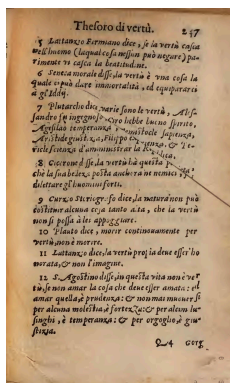 Thesoro di vertù. 247
5 Lattanzo Firmiano dice, se la vertù casca
nell'huomo (laqual cosa nessun può negare) pa-
rimente vi casca la beatitudine.
6 Seneca morale disse, la vertù è vna cosa la
quale ci può dare immortalità, ed equipararci
a gl'Iddij.
7 Plutarcho dice, varie sono le vertù, Ales-
sandro fu ingegnoso, hebbe buono spirito,
Agesilao temperanza, sapienza,
Aristide giustizia, Filippo Pe-
ricle scienza d'amministrar la
8 Cicerone disse, la vertù hà questa
che la sua belez. posta anchora ne nemici
dilettare gl'huomini forti.
9 Curzo disse, la natura non può
costituir alcuna cosa tanto alta, che la vertù
non si possa à lei appoggiare.
10 Plauto dice, morire continouamente per
vertù, non è morire.
11 Lattanzo dice, la vertù propia deue esser ho
norata, & non l'imagine.
12 S. Agostino disse, in questa vita non è ver
tù, se non amar la cosa che deue esser amata: el
amar quella, è prudenza: & non mai muouersi
per alcuna molestia, è fortezza: & per alcun lu-
singhi, è temperanza: & per orgoglio, è giu-
stizia.
Q 4